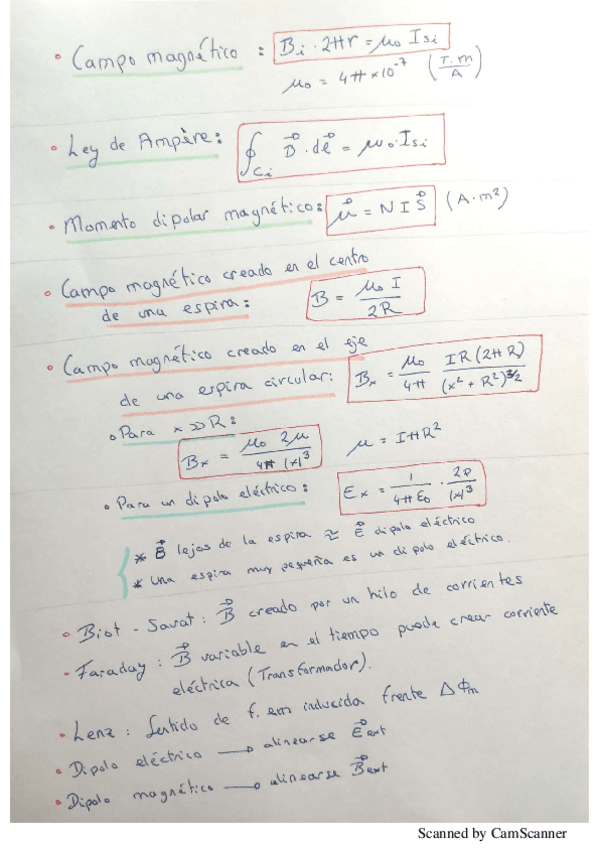 • Campo magnético : B_i · 2πr = μ₀ I_{Si}
μ₀ = 4π×10⁻⁷ (T·m/A)
• Ley de Ampère: ∮_{Ci} B⃗ · dℓ⃗ = μ₀ · I_{Si}
• Momento dipolar magnético: μ⃗ = N I S⃗ (A·m²)
• Campo magnético creado en el centro
de una espira: B = μ₀ I / 2R
• Campo magnético creado en el eje
de una espira circular: B_x = μ₀/4π · IR(2πR)/(x² + R²)^{3/2}
• Para x ≫ R:
B_x = μ₀/4π · 2μ/|x|³ μ = IπR²
• Para un dipolo eléctrico: E_x = 1/4πε₀ · 2p/|x|³
* B⃗ lejos de la espira ≈ E⃗ dipolo eléctrico
* Una espira muy pequeña es un dipolo eléctrico.
• Biot - Savat: B⃗ creado por un hilo de corrientes
• Faraday: B⃗ variable en el tiempo puede crear corriente
eléctrica (Transformador).
• Lenz: Sentido de f.em inducida frente Δϕₘ
• Dipolo eléctrico → alinearse E⃗ext
• Dipolo magnético → alinearse B⃗ext
Scanned by CamScanner